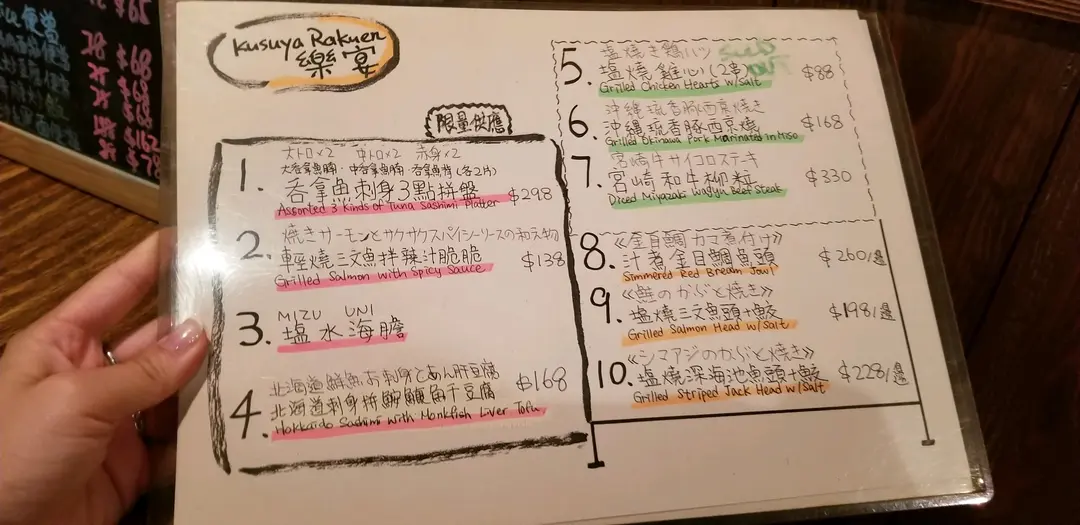 Kusuya Rakuen
樂宴
限量供應
1.
大トロ×2 中トロ×2 赤身×2
大吞拿魚腩・中吞拿魚腩・吞拿魚背(各2片)
吞拿魚刺身3點拼盤 $298
Assorted 3 Kinds of Tuna Sashimi Platter
2.
焼きサーモンとサクサクスパイシーソースの和え物
輕燒三文魚拌辣汁脆脆 $138
Grilled Salmon with Spicy Sauce
3.
MIZU UNI
塩水海膽
4.
北海道鮮魚お刺身とあん肝豆腐 $168
北海道刺身拌鮟鱇魚肝豆腐
Hokkaido Sashimi with Monkfish Liver Tofu
5.
塩焼き鶏ハツ
塩燒雞心(2串) $88
Grilled Chicken Hearts w/Salt
6.
沖縄琉香豚西京焼き
沖縄琉香豚西京燒 $168
Grilled Okinawa Pork Marinated in Miso
7.
宮崎牛サイコロステーキ
宮崎和牛柳粒 $330
Diced Miyazaki Wagyu Beef Steak
8.
《金目鯛カマ煮付け》
汁煮金目鯛魚頭 $260/邊
Simmered Red Bream Jowl
9.
《鮭のかぶと焼き》
塩燒三文魚頭+鮫 $198/邊
Grilled Salmon Head w/Salt
10.
《シマアジのかぶと焼き》
塩燒深海池魚頭+鮫 $228/邊
Grilled Striped Jack Head w/Salt
$65
$68
$162
$78